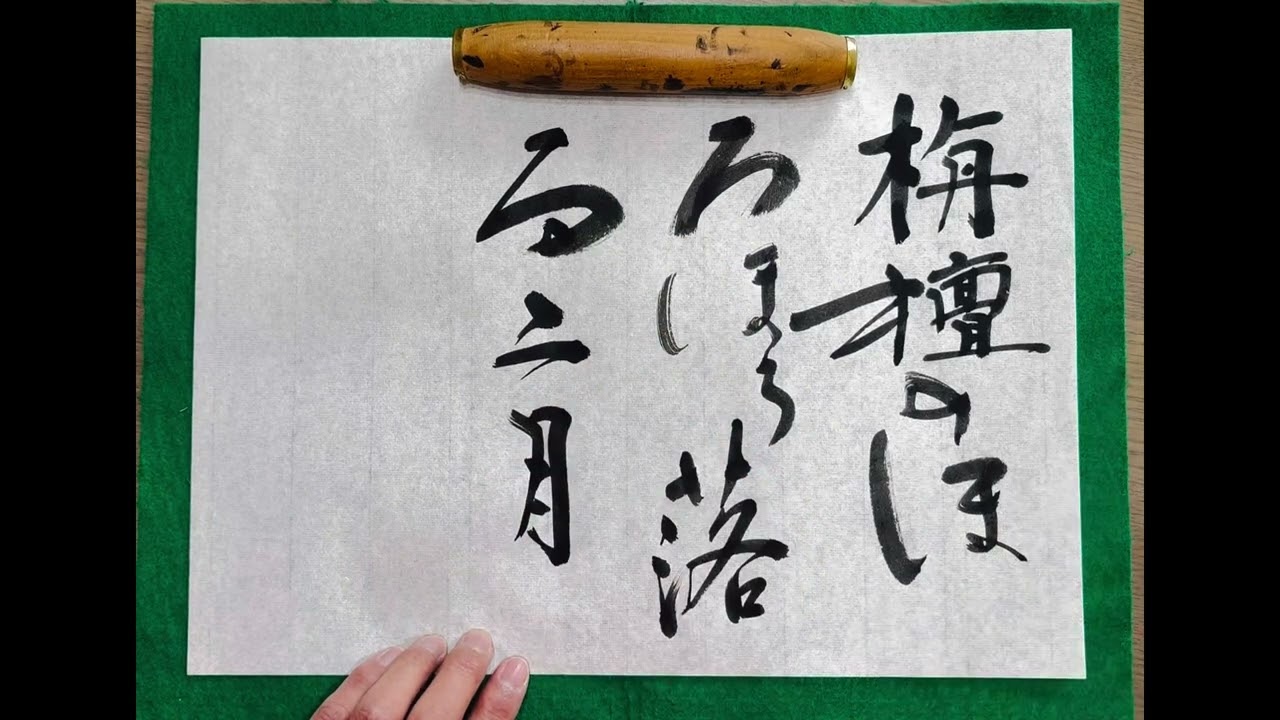 栴檀のほ
ろほろ落
る二月